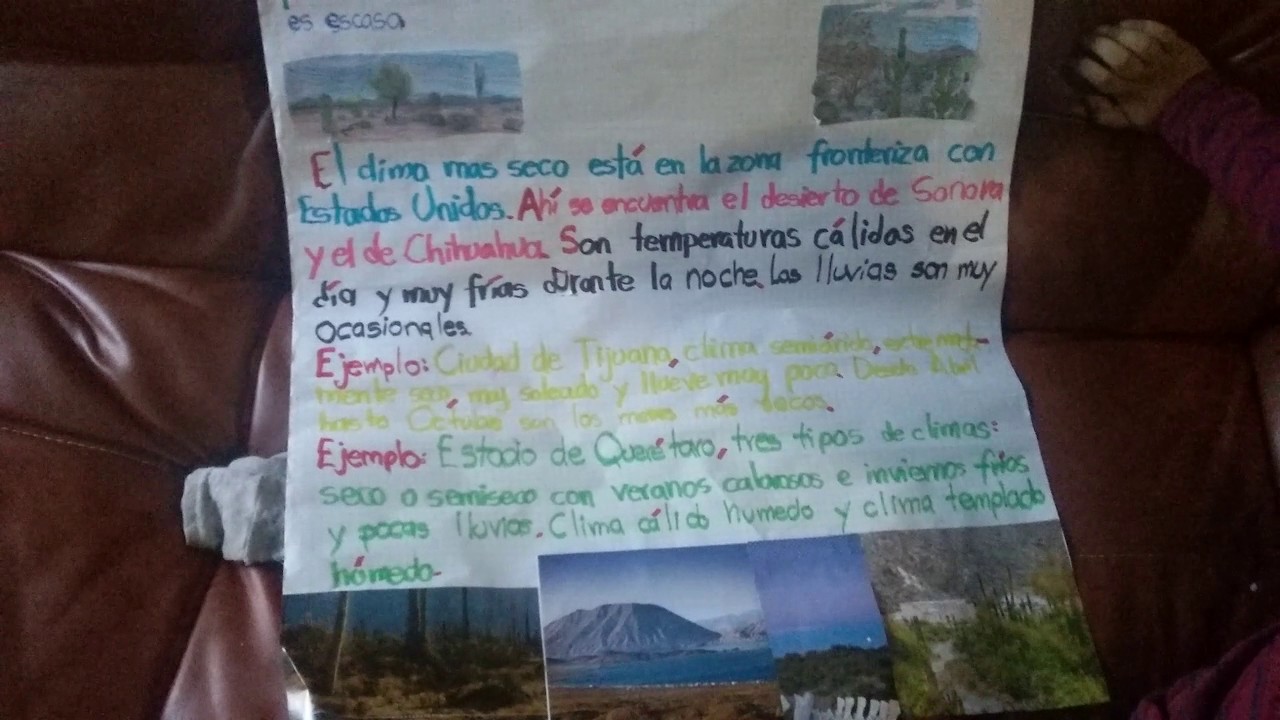 es escasa
El clima mas seco está en la zona fronteriza con
Estados Unidos. Ahí se encuentra el desierto de Sonora
y el de Chihuahua. Son temperaturas cálidas en el
día y muy frías durante la noche. Las lluvias son muy
ocasionales.
Ejemplo: Ciudad de Tijuana, clima semiárido, extremada-
mente seco, muy soleado y llueve muy poco. Desde Abril
hasta Octubre son los meses más secos.
Ejemplo: Estado de Querétaro, tres tipos de climas:
seco o semiseco con veranos calurosos e inviernos fríos
y pocas lluvias. Clima cálido humedo y clima templado
húmedo.